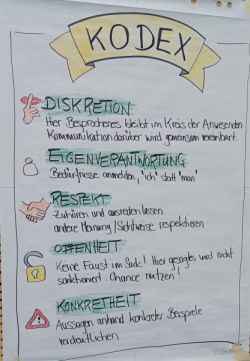 KODEX
DISKRETION
Hier Besprochenes bleibt im Kreis der Anwesenden
Kommunikation darüber wird gemeinsam vereinbart.
EIGENVERANTWORTUNG
Bedürfnisse anmelden, "ich" statt "man"
RESPEKT
Zuhören und ausreden lassen
andere Meinung / Sichtweise respektieren
OFFENHEIT
Keine Faust im Sack! Hier gesagtes wird nicht
sanktioniert. Chance nutzen!
KONKRETHEIT
Aussagen anhand konkreter Beispiele
verdeutlichen